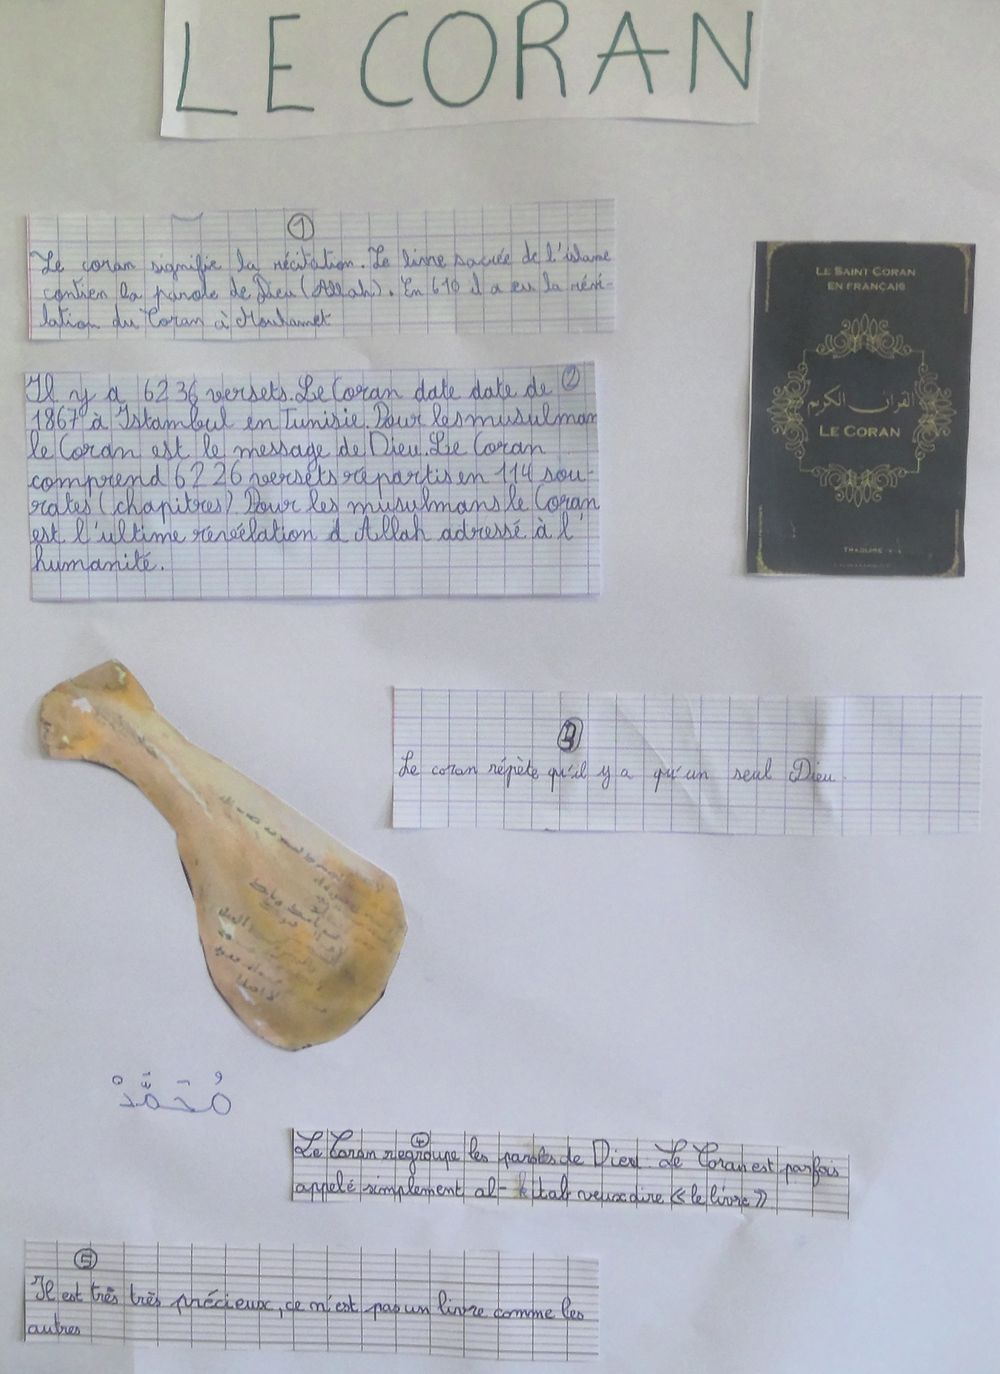 LE CORAN
①
Le coran signifie la récitation. Le livre sacrée de l'islame
contien la parole de Dieu (Allah). En 610 il a eu la révé-
lation du Coran à Mouhamet
Il y a 6236 versets. Le Coran date date de ②
1867 à Istambul en Tunisie. Pour les musulman
le Coran est le message de Dieu. Le Coran
comprend 6226 versets repartis en 114 sou-
rates (chapitres) Pour les musulmans le Coran
est l'ultime revéelation d Allah adressé à l'
humanité.
LE SAINT CORAN
EN FRANÇAIS
القرآن الكريم
LE CORAN
3
Le coran répète qu'il y a qu'un seul Dieu.
مُحَمَّدْ
④
Le Coran regroupe les paroles de Dieu. Le Coran est parfois
appelé simplement al-kitab veux dire «le livre»
⑤
Il est très très précieux, ce n'est pas un livre comme les
autres